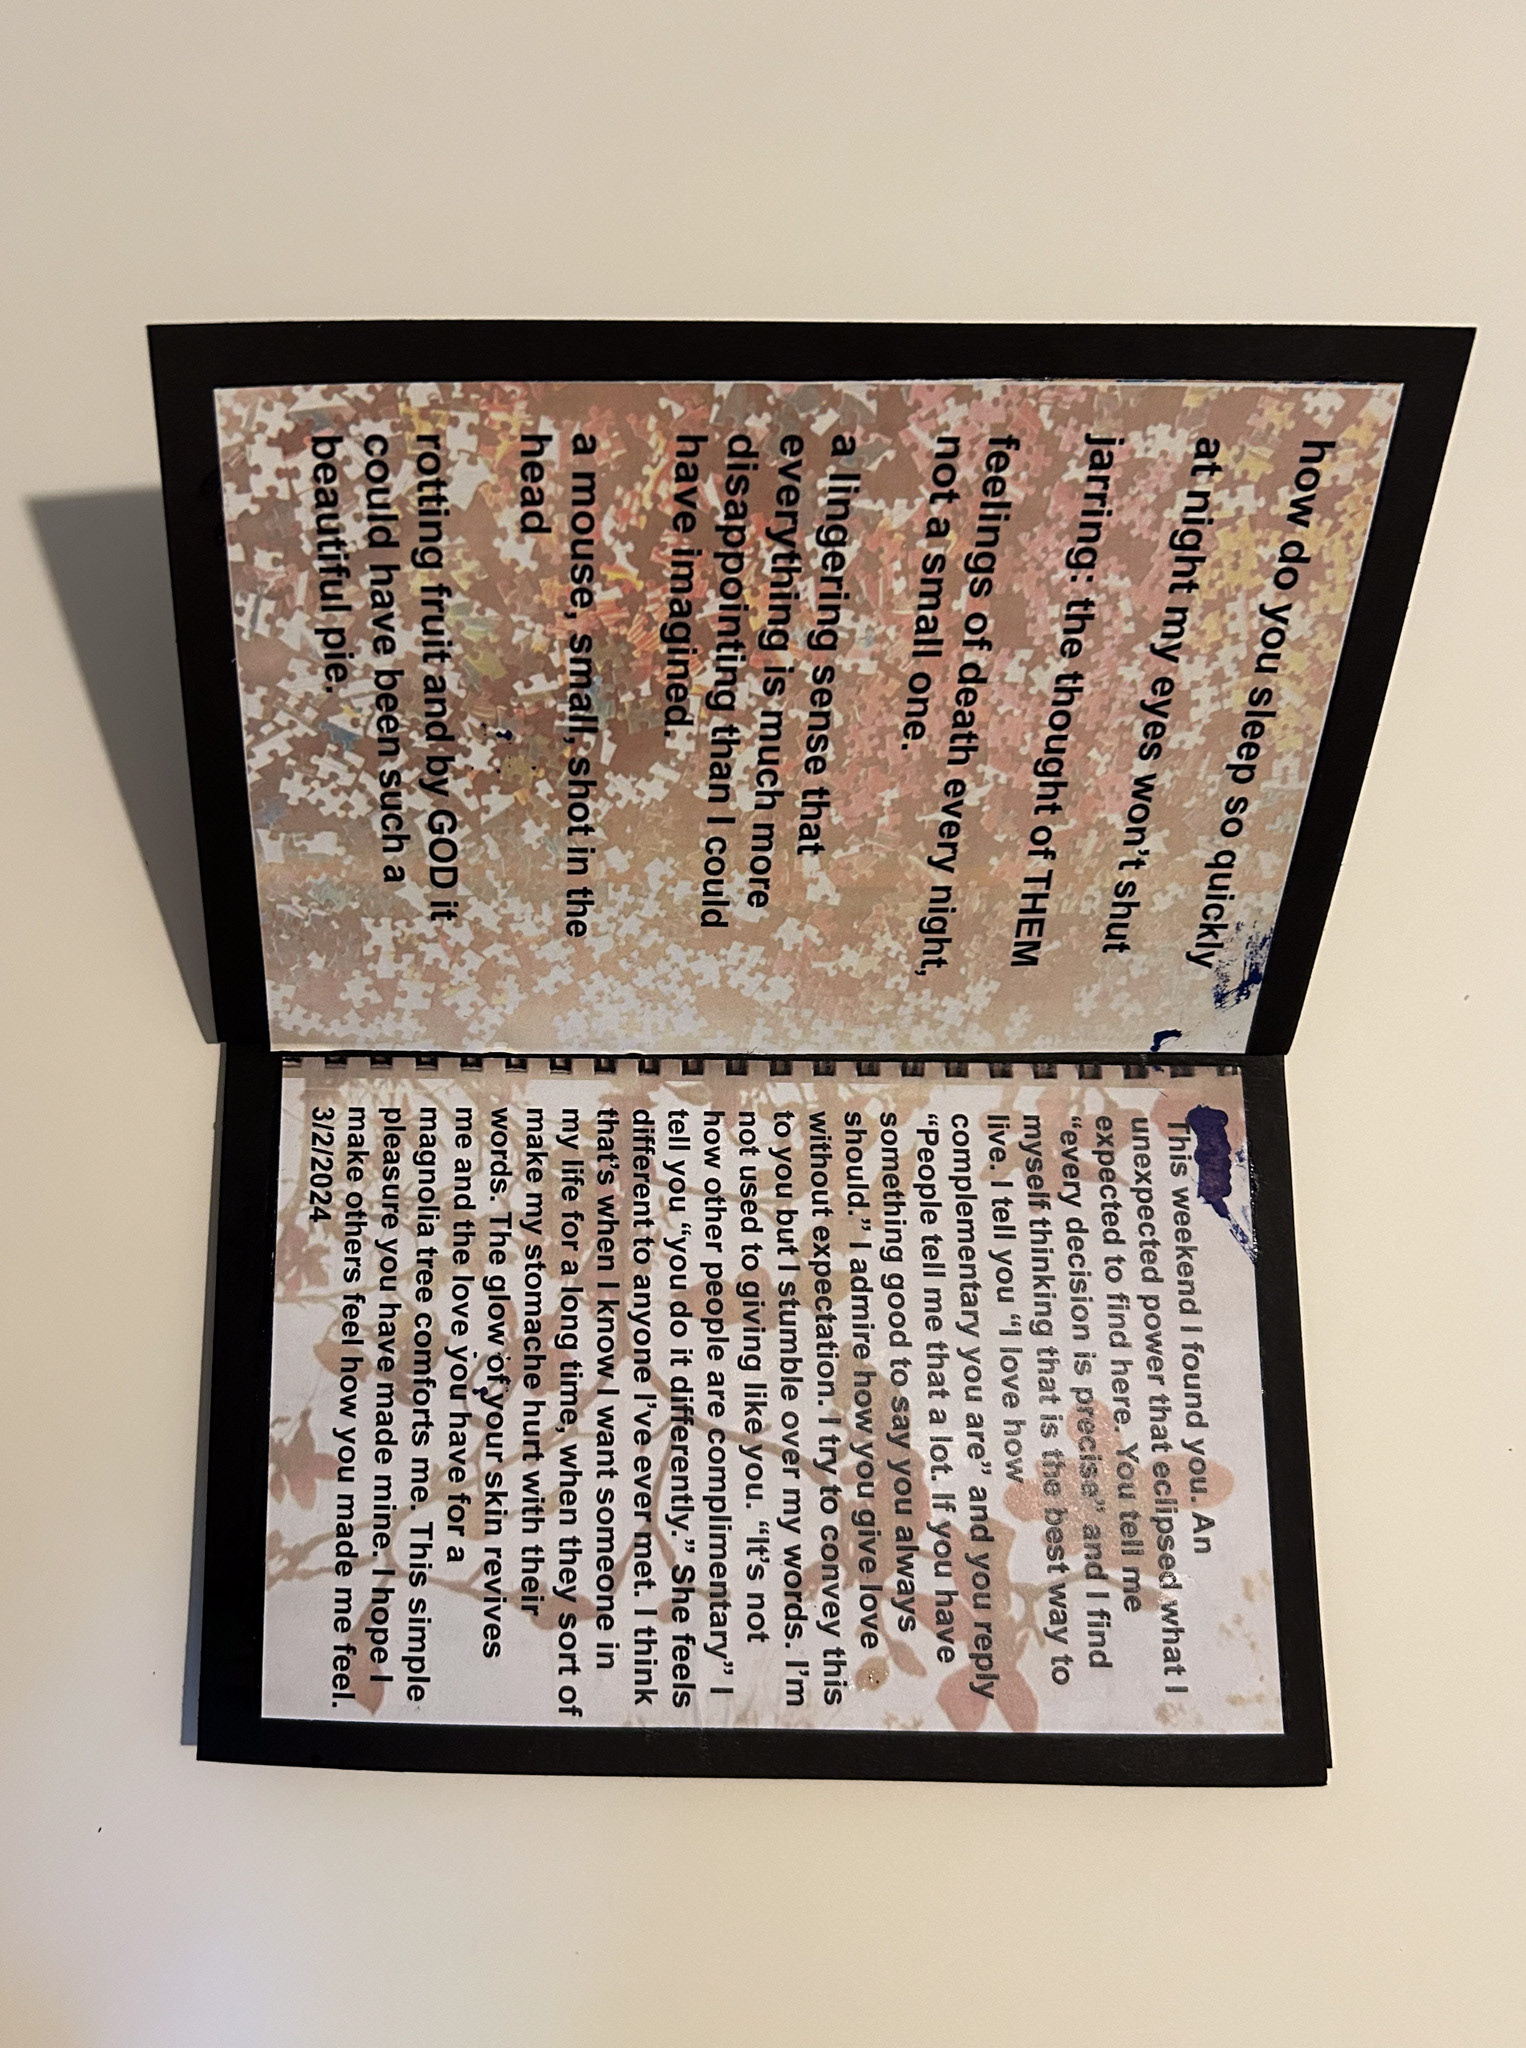 how do you sleep so quickly
at night my eyes won't shut
jarring: the thought of THEM
feelings of death every night,
not a small one.
a lingering sense that
everything is much more
disappointing than I could
have imagined.
a mouse, small, shot in the
head
rotting fruit and by GOD it
could have been such a
beautiful pie.
This weekend I found you. An
unexpected power that eclipsed what I
expected to find here. You tell me
“every decision is precise” and I find
myself thinking that is the best way to
live. I tell you “I love how
complementary you are” and you reply
“People tell me that a lot. If you have
something good to say you always
should.” I admire how you give love
without expectation. I try to convey this
to you but I stumble over my words. I'm
not used to giving like you. “It's not
how other people are complimentary” I
tell you “you do it differently.” She feels
different to anyone I've ever met. I think
that's when I know I want someone in
my life for a long time, when they sort of
make my stomache hurt with their
words. The glow of your skin revives
me and the love you have for a
magnolia tree comforts me. This simple
pleasure you have made mine. I hope I
make others feel how you made me feel.
3/2/2024